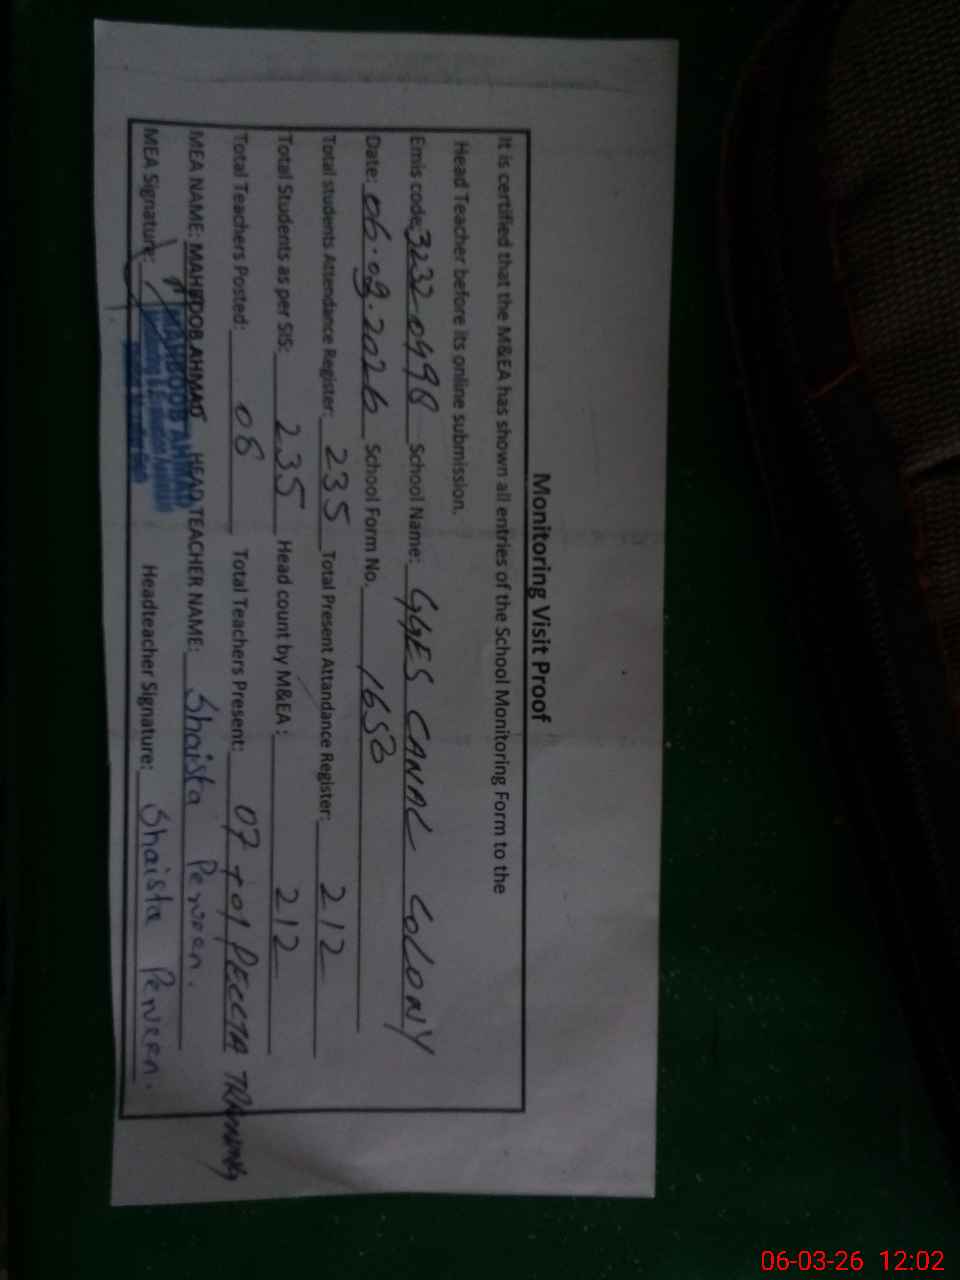 Monitoring Visit Proof
It is certified that the M&EA has shown all entries of the School Monitoring Form to the
Head Teacher before its online submission.
Emis code: 32320498 School Name: GGES CANAL COLONY
Date: 06.03.2026 School Form No. 1658
Total students Attendance Register: 235 Total Present Attandance Register: 212
Total Students as per SIS: 235 Head count by M&EA: 212
Total Teachers Posted: 08 Total Teachers Present: 07 + 01 PECCTA TRAINING
MEA NAME: MAHBOOB AHMAD HEAD TEACHER NAME: Shaista Perveen.
MEA Signature: Headteacher Signature: Shaista Perveen.
MAHBOOB AHMAD
06-03-26 12:02